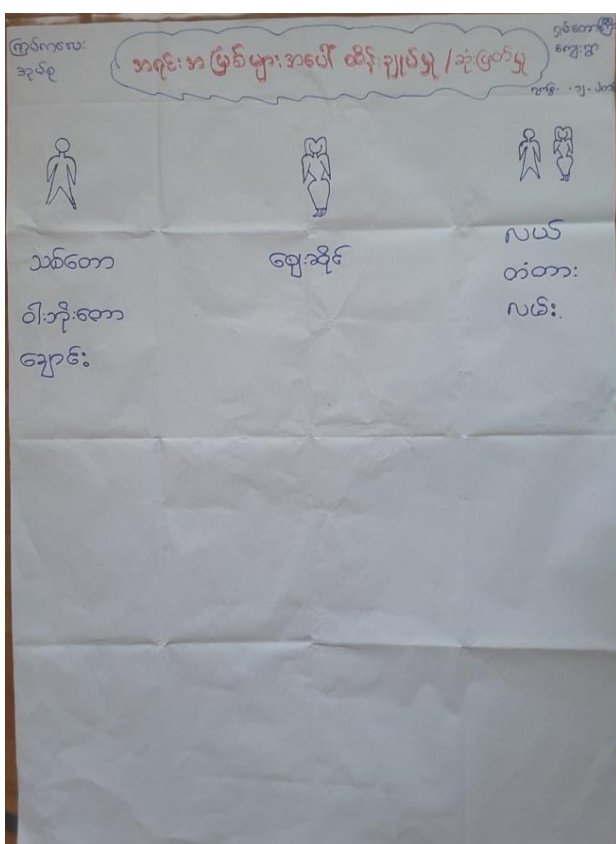 ကြပ်ကလေး
အုပ်စု
အရင်းအမြစ်များအပေါ် ထိန်းချုပ်မှု / ဆုံးဖြတ်မှု
ကျေးရွာ
သစ်တော
ဝါးဘိုးတော
ချောင်း
ဈေးဆိုင်
လယ်
တံတား
လမ်း